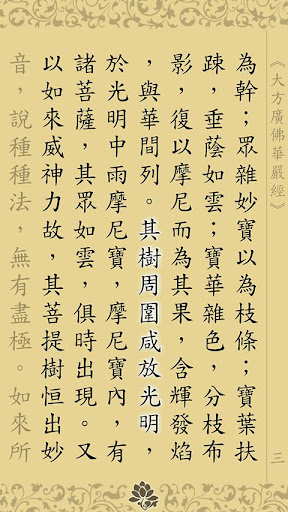 《大方廣佛華嚴經》
三
為幹；眾雜妙寶以為枝條；寶葉扶
踈，垂蔭如雲；寶華雜色，分枝布
影，復以摩尼而為其果，含輝發焰
，與華間列。其樹周圍咸放光明，
於光明中雨摩尼寶，摩尼寶內，有
諸菩薩，其眾如雲，俱時出現。又
以如來威神力故，其菩提樹恒出妙
音，說種種法，無有盡極。如來所